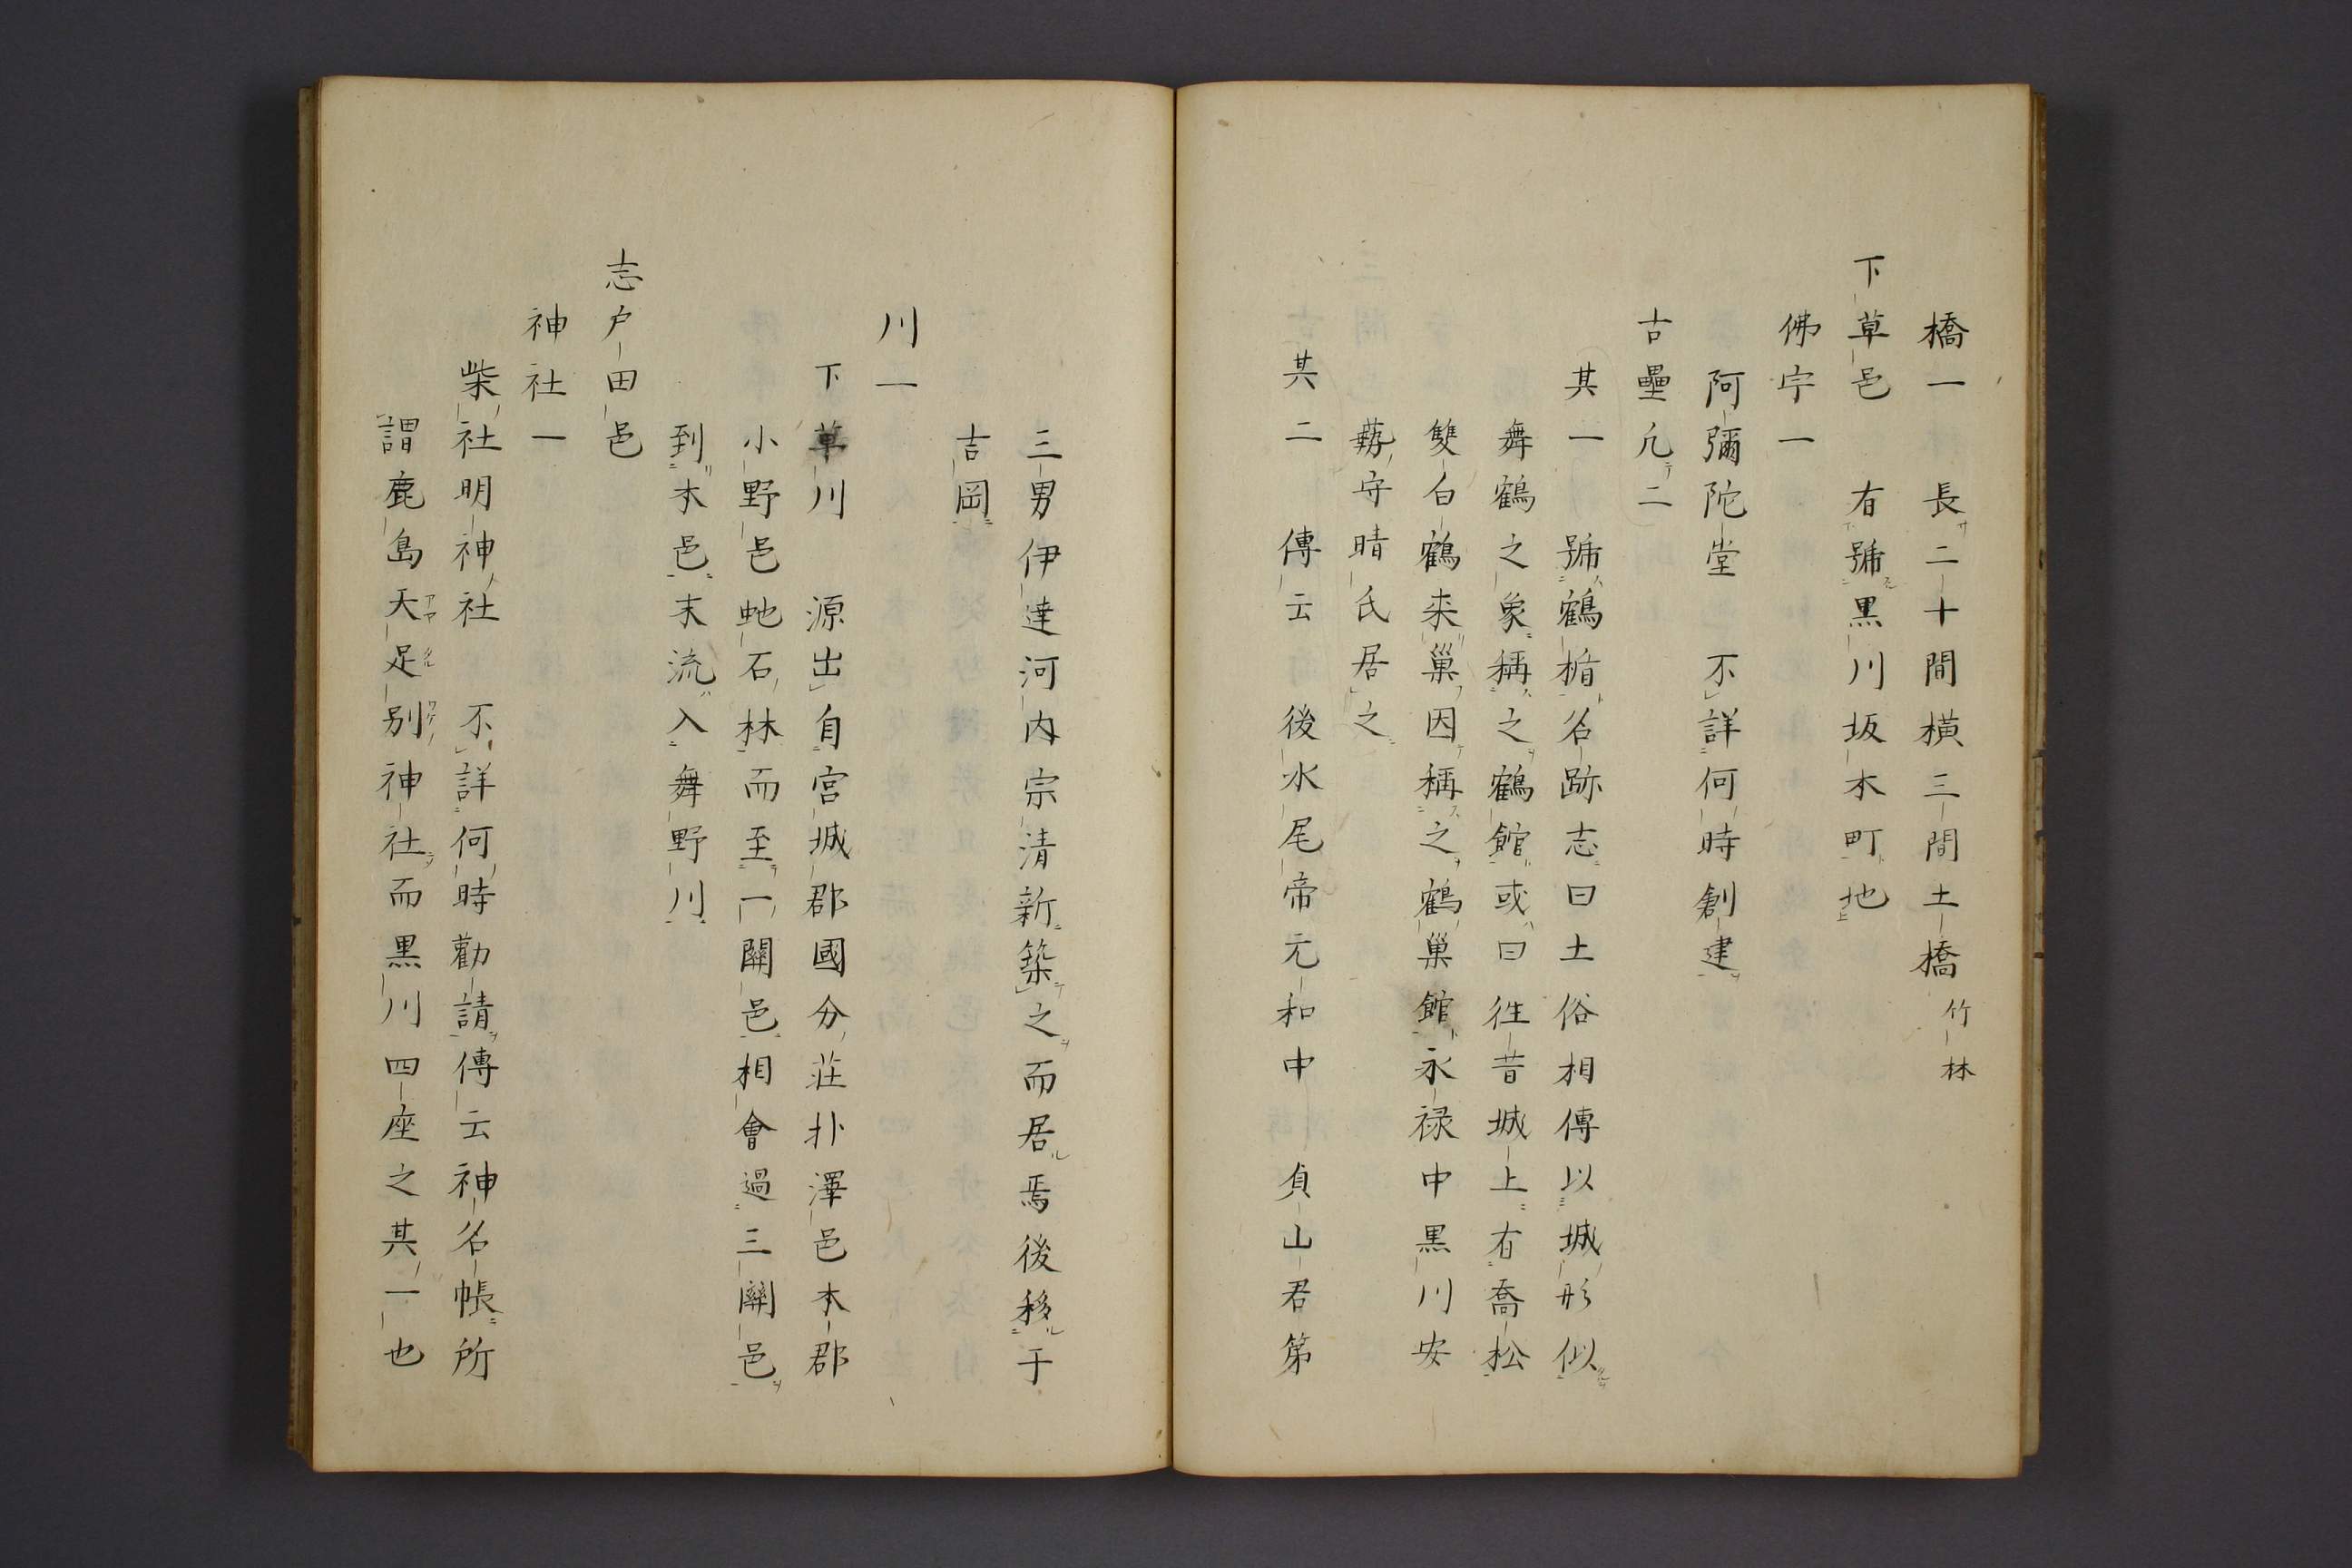 橋一　長二十間橫三間土橋 竹林
下草邑　有號黒川坂本町地
佛宇一
阿彌陀堂　不詳何時創建
古壘凡二
其一　號鶴楯名跡志曰土俗相傳以城形似
舞鶴之象稱之鶴館或曰徃昔城上有喬松
雙白鶴来巢因稱之鶴巢館永禄中黒川安
藝守晴氏居之
其二　傳云　後水尾帝元和中　貞山君第
三男伊達河内宗清新築之而居焉後移于
吉岡
川一
下草川　源出自宮城郡國分莊朴澤邑本郡
小野邑虵石林而至一關邑相會過三關邑
到本邑末流入舞野川
志户田邑
神社一
柴社明神社　不詳何時勸請傳云神名帳所
謂鹿島天足別神社而黒川四座之其一也